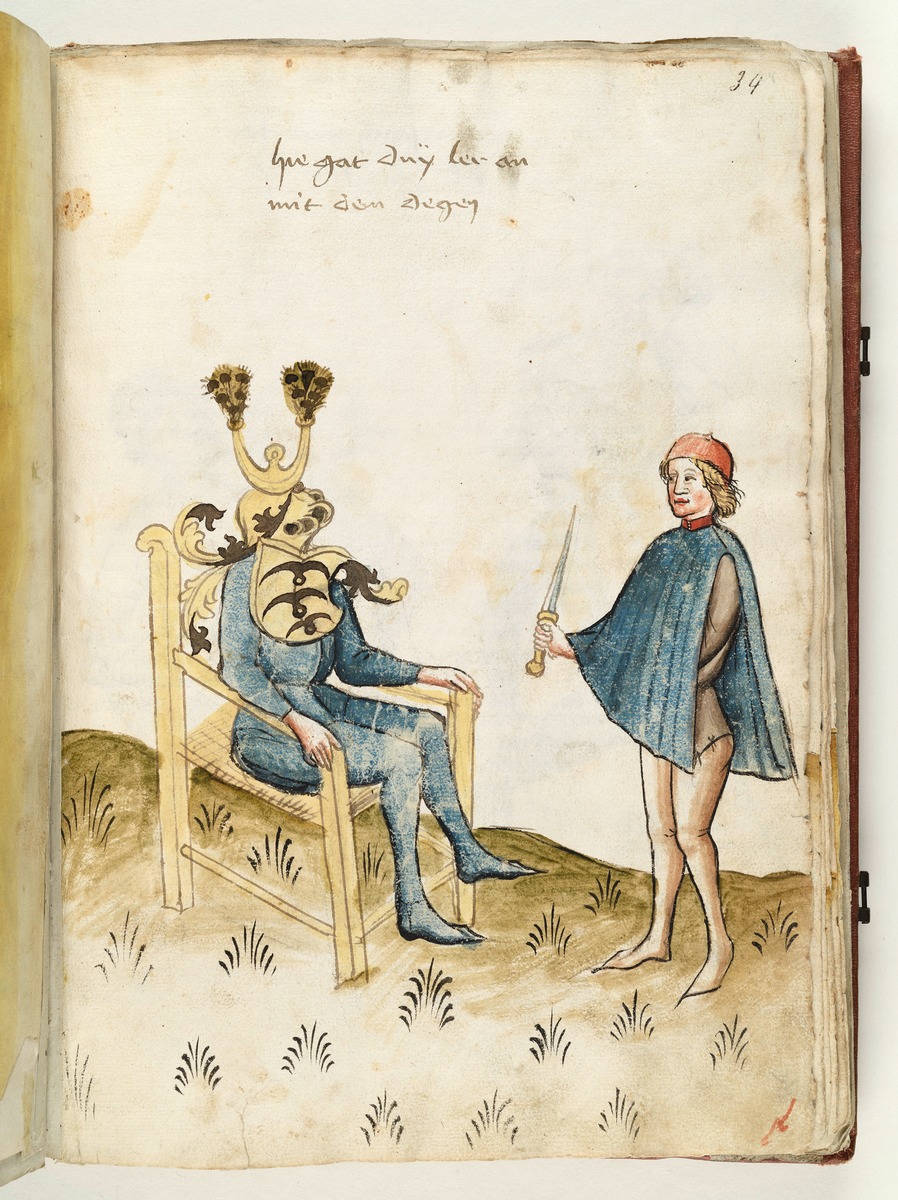 34
hie gat duÿ ler an
mit dem degen